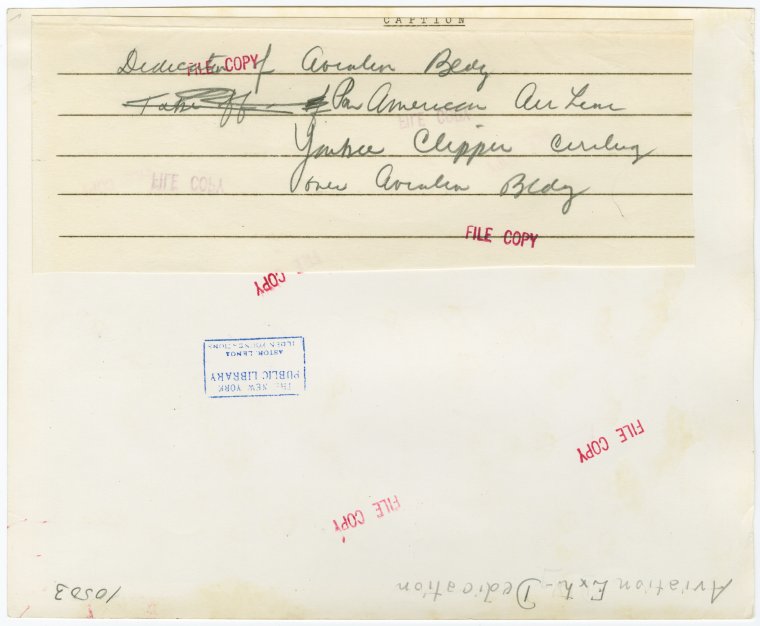 CAPTION
Dedication of Aviation Bldg
Take Off of Pan American Air Line
Yankee Clipper Circling
over Aviation Bldg
FILE COPY
FILE COPY
FILE COPY
FILE COPY
FILE COPY
FILE COPY
THE NEW YORK
PUBLIC LIBRARY
ASTOR, LENOX
TILDEN FOUNDATIONS
FILE COPY
FILE COPY
Aviation Exh - Dedication
10503